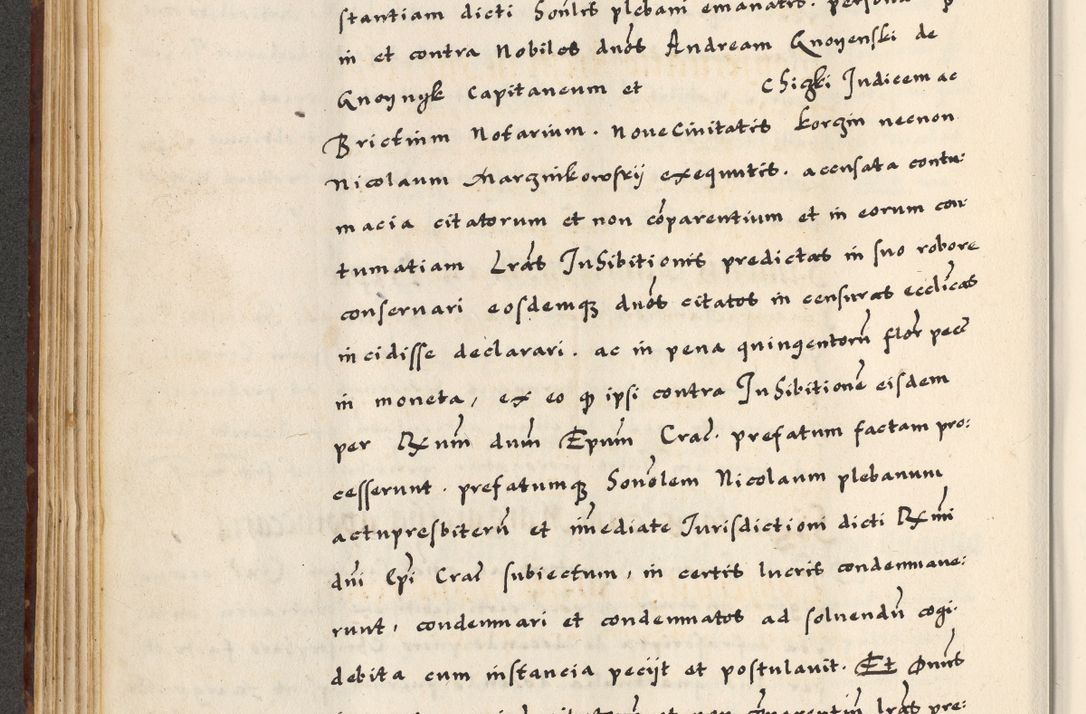 stantiam dicti Honlis plebani emanatis. persona
in et contra Nobiles dnos Andream Gnoyenski de
Gnoynyk Capitaneum et Chiczki Iudicem ac
Brictium Notarium. Nove Civitatis Korczin necnon
Nicolaum Marczinkowskij exequutis. accusata contu:
macia citatorum et non coparentium et in eorum con
tumatiam Lras Inhibitionis predictas in suo robore
conservari eosdemq dnos citatos in censuras ecclicas
incidisse declarari. ac in pena quingentoru flor pece
in moneta, ex eo q ipsi contra Inhibitione eisdem
per Rxmm dnm Epum Crac. prefatum factam pro:
cesserunt. prefatumq Honolem Nicolaum plebanum
actu presbiteru et imediate Iurisdictioni dicti Rxmi
dni Epi Crac subiectum, in certis lucris condemnave:
runt, condemnari et condemnatos ad solvendu cogi.
debita cum instancia pecijt et postulavit. Et dnus
lras pre: